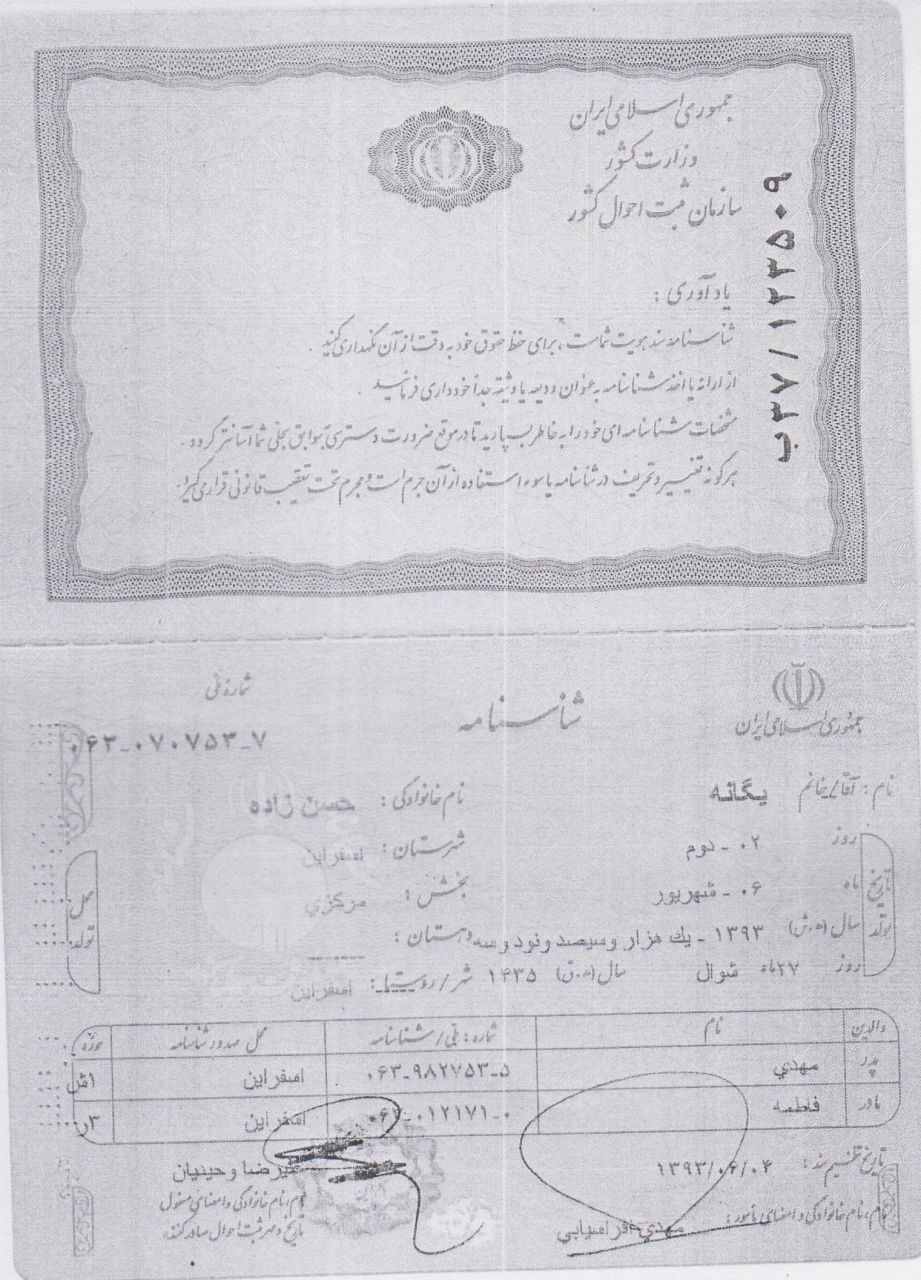 جمهوری اسلامی ایران
وزارت کشور
سازمان ثبت احوال کشور
ب۳۷/۱۲۲۵۰۹
یادآوری :
شناسنامه سند هویت شماست ، برای حفظ حقوق خود به دقت از آن نگهداری کنید .
از ارائه یا اخذ شناسنامه به عنوان ودیعه یا وثیقه جداً خودداری فرمائید .
مشخصات شناسنامه ای خود را به خاطر بسپارید تا در موقع ضرورت دسترسی به سوابق سجلی شما آسانتر گردد .
هرگونه تغییر و تحریف در شناسنامه یا سوء استفاده از آن جرم است و مجرم تحت تعقیب قانونی قرار می گیرد .
جمهوری اسلامی ایران
شناسنامه
شماره ملی
۰۶۳-۰۷۰۷۵۳-۷
نام : آقا/خانم یگانه نام خانوادگی : حسن زاده
تاریخ تولد
روز ۰۲ - دوم شهرستان : اسفراین
ماه ۰۶ - شهریور بخش : مرکزي
سال (ه.ش) ۱۳۹۳ - يك هزار وسيصد ونود وسه دهستان : ------
روز ۲۷ ماه شوال سال (ه.ق) ۱۴۳۵ شهر/روستا : اسفراین
محل تولد
والدین نام شماره : ملی/شناسنامه محل صدور شناسنامه حوزه
پدر مهدي ۰۶۳-۹۸۲۷۵۳-۵ اسفراین ۱ش
مادر فاطمه ۰۶۳-۰۱۲۱۷۱-۰ اسفراین ۳ر
تاریخ تنظیم سند : ۱۳۹۳/۰۶/۰۴
نام، نام خانوادگی و امضای مأمور : مهدي افراسیابی
علیرضا وحیدیان
نام، نام خانوادگی و امضای مسئول
تاریخ و مهر ثبت احوال صادر کننده